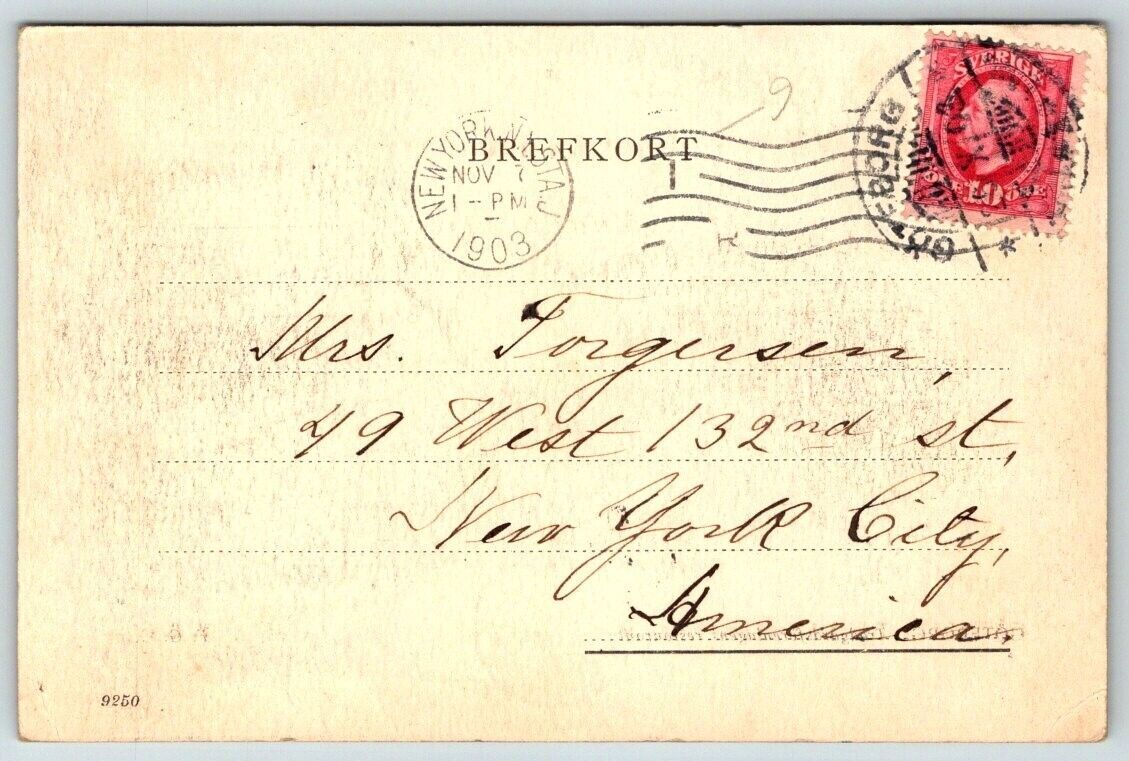 SVERIGE
10
ÖRE
GÖTEBORG
NEW YORK, N.Y. STA. J
NOV 7
1 - PM
1903
BREFKORT
9
Mrs. Torgersen,
49 West 132nd st,
New York City,
America.
9250